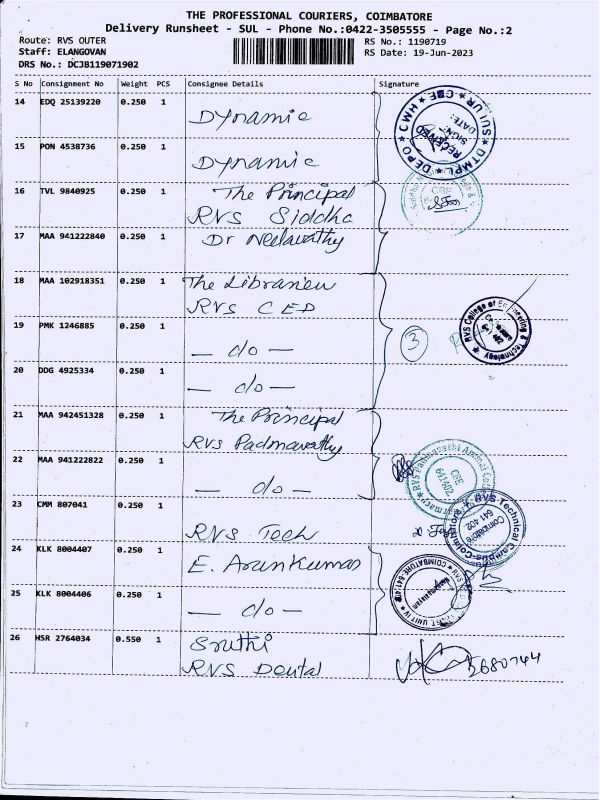 THE PROFESSIONAL COURIERS, COIMBATORE
Delivery Runsheet - SUL - Phone No.:0422-3505555 - Page No.:2
Route: RVS OUTER RS No.: 1190719
Staff: ELANGOVAN RS Date: 19-Jun-2023
DRS No.: DCJB119071902
S No Consignment No Weight PCS Consignee Details Signature
14 EDQ 25139220 0.250 1
Dynamic
15 PON 4538736 0.250 1
Dynamic
16 TVL 9840925 0.250 1 The Principal
RVS Siddha
17 MAA 941222840 0.250 1 Dr Neelavathy
18 MAA 102918351 0.250 1 The Librarien
RVS CED
19 PMK 1246885 0.250 1
— do —
20 DDG 4925334 0.250 1
— do —
21 MAA 942451328 0.250 1 The Principal
RVS Padmavathy
22 MAA 941222822 0.250 1
— do —
23 CMM 807041 0.250 1
RVS Tech
24 KLK 8004407 0.250 1
E. Arunkumar
25 KLK 8004406 0.250 1
— do —
26 HSR 2764034 0.550 1 Sruthi
RVS Dental
DTMPL ★ DEPO ★ CWH ★ CBE ★ SULUR
RECEIVED
SIGN:
DATE:
CBE
3
RVS College of Engineering & Technology
CBE
641402
RVS-Technical Campus-Coimbatore
Coimbatore
641 402
COIMBATORE-641402
UNIT IV